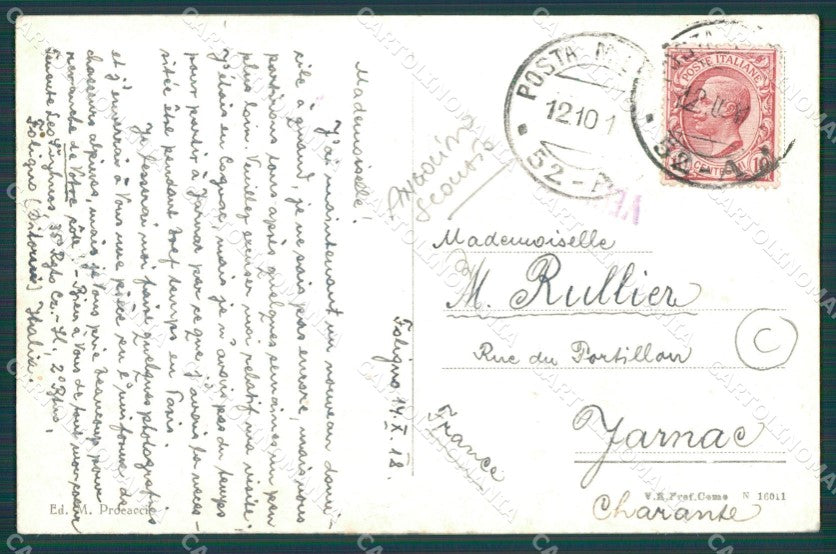 Mademoiselle!
J'ai maintenant un nouveau domi-
cile à quand, je ne sais pas encore, mais nous
partirons tous après quelques semaines un peu
plus loin. Veuillez excuser moi relatif ma visite.
J'étais en Cognac mais je n'avais pas du temps
pour partir à Jarnac par ce que j'avais la neces-
sitée être pendant bref temps en Paris.
Je laisserai moi faire quelques photografies
et j'enverrai à Vous une pièce en l'uniforme de
chasseurs alpins, mais je Vous prie beaucoup pour
revanche de Votre côté! - Bien à Vous de tout mon cœur
35 Regto Ca. - II, 2° Rpto,
Foligno Italie
Foligno 14. X. 18.
POSTA M
12.10.1
52-
POSTE ITALIANE
10
52-A
ANGOLINO
Mademoiselle
M. Rullier
Rue du Portillon
Jarnac
Charante
France
C
Ed. M. Procaccio
V.E. Prof. Como N 16011
CARTOLINOMANIA